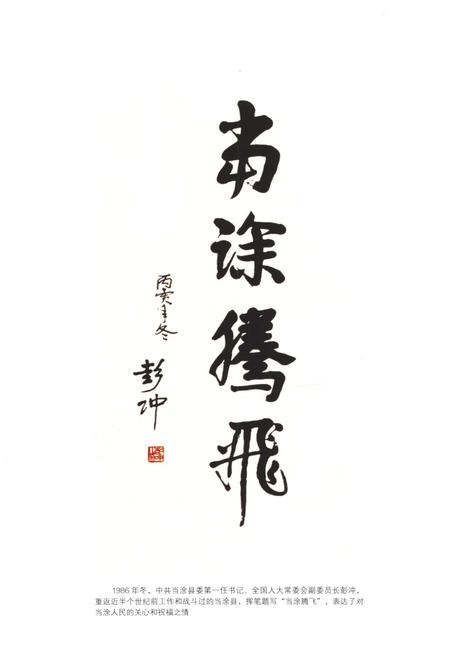 当涂腾飛
丙寅年冬
彭冲
1986 年冬，中共当涂县委第一任书记、全国人大常委会副委员长彭冲，
重返近半个世纪前工作和战斗过的当涂县，挥笔题写“当涂腾飞”，表达了对
当涂人民的关心和祝福之情